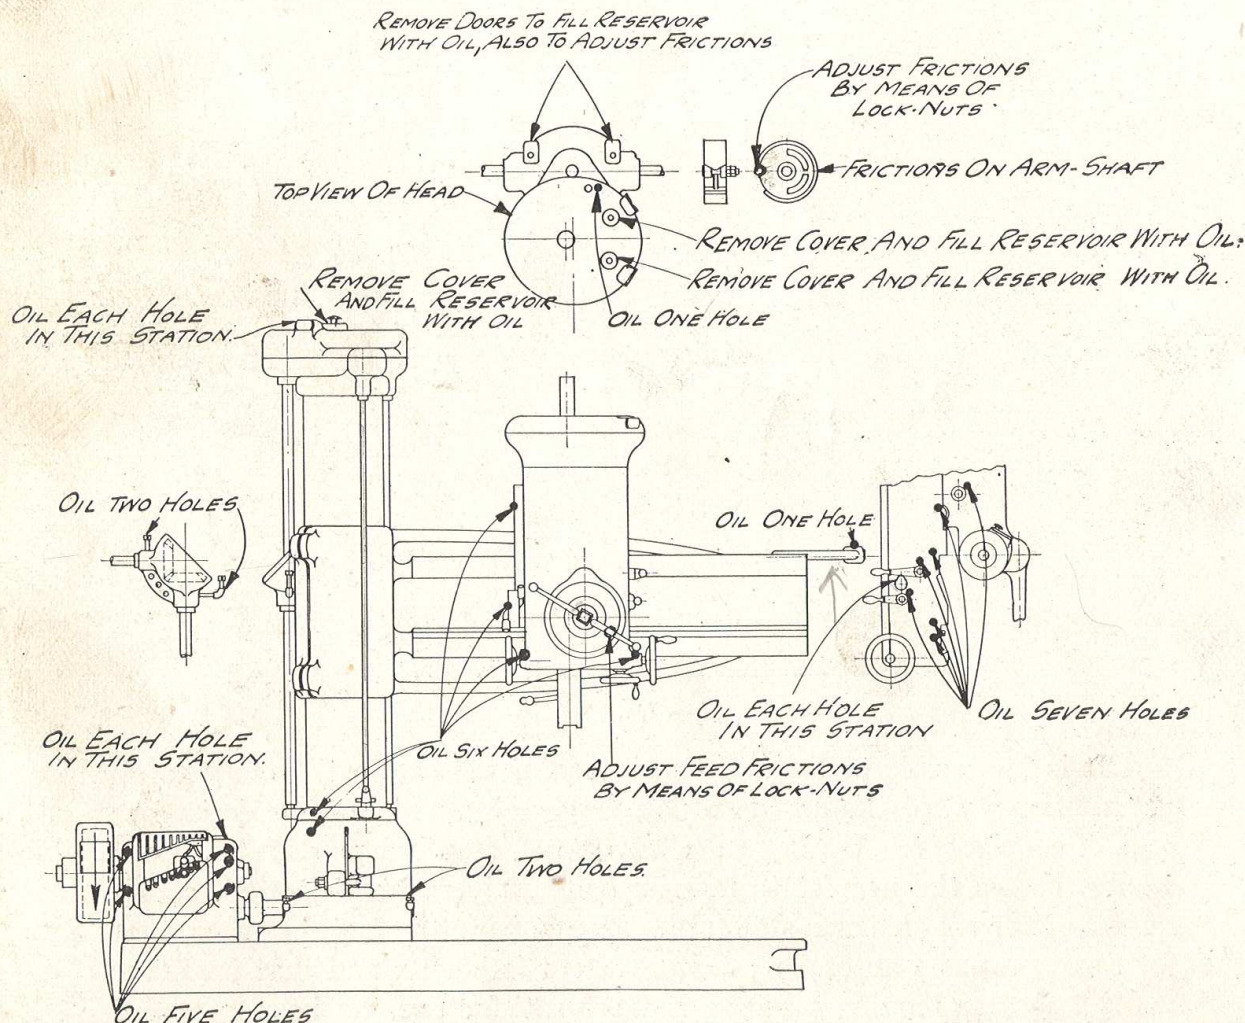 REMOVE DOORS TO FILL RESERVOIR
WITH OIL, ALSO TO ADJUST FRICTIONS
ADJUST FRICTIONS
BY MEANS OF
LOCK-NUTS
FRICTIONS ON ARM-SHAFT
TOP VIEW OF HEAD
REMOVE COVER AND FILL RESERVOIR WITH OIL.
REMOVE COVER AND FILL RESERVOIR WITH OIL.
REMOVE COVER
AND FILL RESERVOIR
WITH OIL
OIL ONE HOLE
OIL EACH HOLE
IN THIS STATION.
OIL TWO HOLES
OIL ONE HOLE
OIL EACH HOLE
IN THIS STATION
OIL SEVEN HOLES
OIL EACH HOLE
IN THIS STATION.
OIL SIX HOLES
ADJUST FEED FRICTIONS
BY MEANS OF LOCK-NUTS
OIL TWO HOLES.
OIL FIVE HOLES